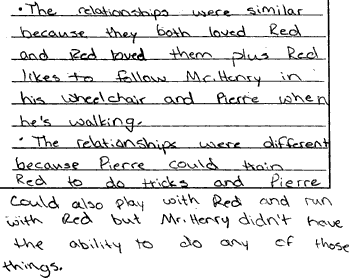 • The relationships were similar
because they both loved Red
and Red loved them plus Red
likes to follow Mr. Henry in
his wheelchair and Pierre when
he's walking.
• The relationships were different
because Pierre could train
Red to do tricks and Pierre
could also play with Red and run
with Red but Mr. Henry didn't have
the ability to do any of those
things.